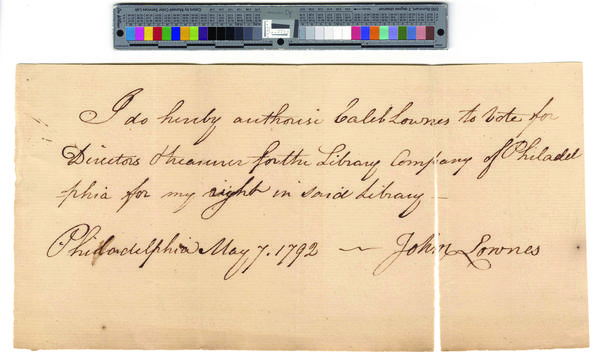 I do hereby authorise Caleb Lownes to Vote for
Directors & treasurer for the Library Company of Philadel
phia for my right in said Library —
Philadelphia May 7. 1792 — John Lownes